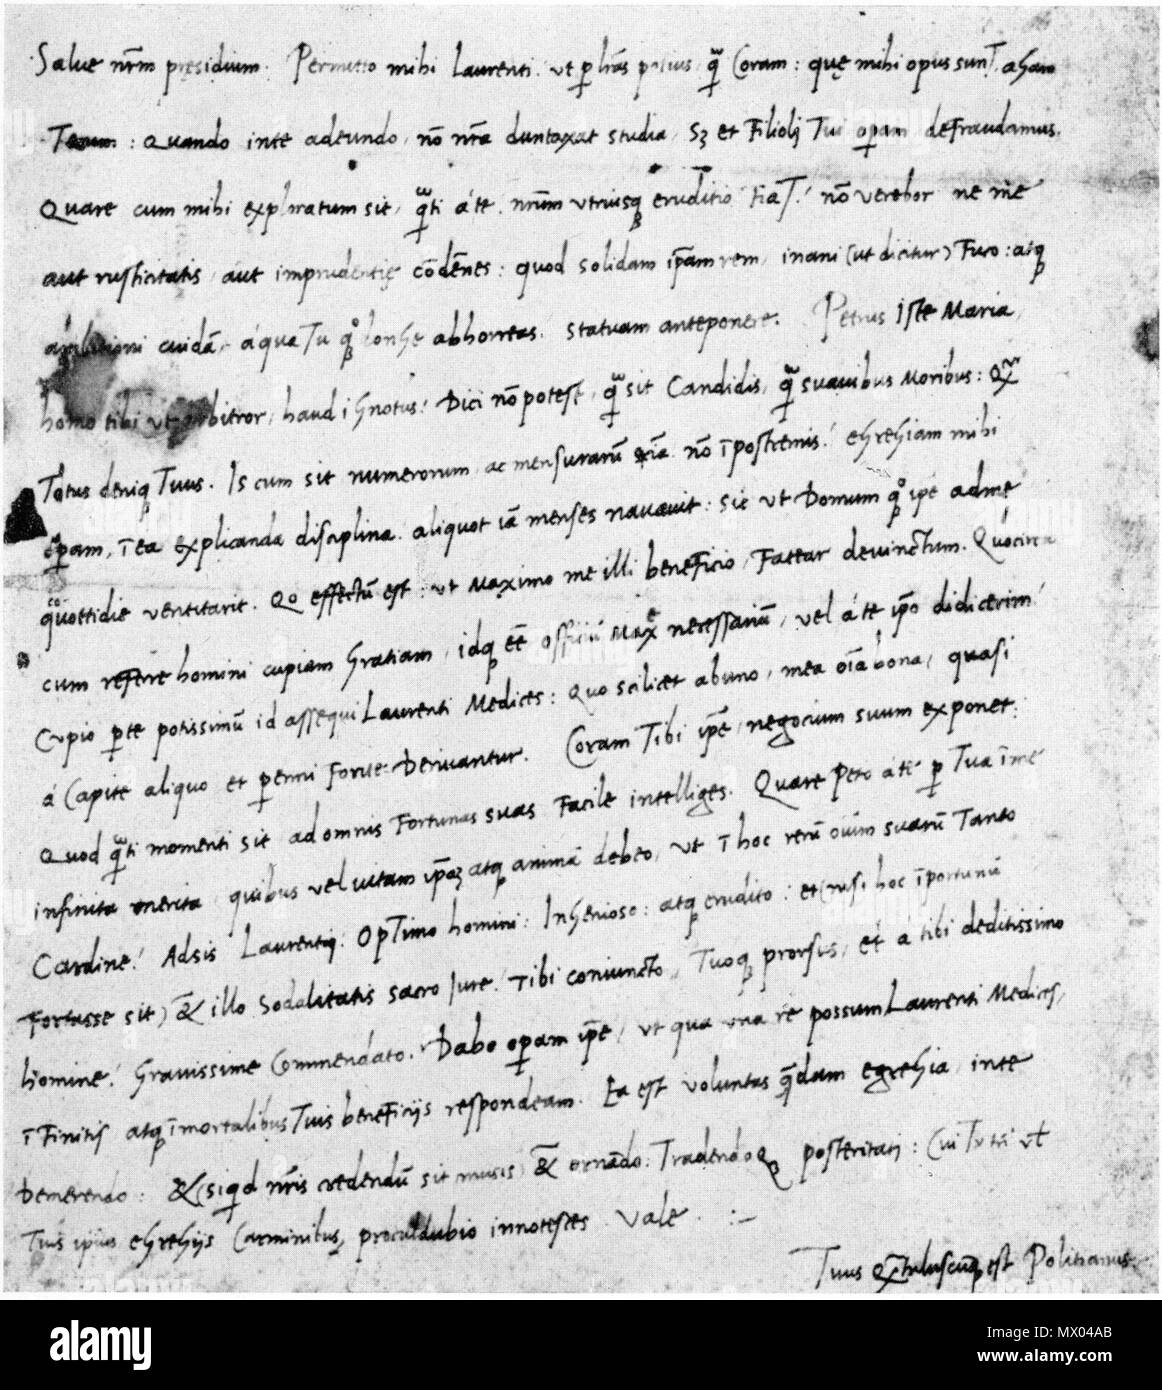 Salue nr̄m pręsidium. Permitto mihi Laurenti. ut p lr̄as potius, q̃ Coram: quę mihi opus sunt,
: Quando inte adeundo, nō nr̄a duntaxat studia, sꝫ et Filiolj Tui opam defraudamus.
Quare cum mihi exploratum sit, q̃ti áte nr̄um utriusqꝫ eruditio fiat! nō verebor ne me
aut rusticitatis, aut imprudentię cōdēnes: quod solidam ip̄am rem, inani (ut dicitur) Fuco: atqꝫ
ambitioni cuidā, áqua Tu qꝫ longe abhorreas! statuam anteponere. Petrus iste Maria,
homo tibi ut arbitror, haud ignotus! Dici nō potest, q̃ sit Candidis, q̃ suauibus Moribus: Qr̃
Totus deniqꝫ Tuus. Is cum sit numerorum, ac mensurarū nō ī postremis! egregiam mihi
opam, ī ea explicanda disciplina. aliquot iā menses nauauit: sic ut Domum qꝫ ip̄e adme
quottidie ventitarit. Qo effectū est: ut Maximo me illi beneficio, Fatear deuinctum. Quocirca
cum referre homini cupiam Gratiam, idqꝫ eē officiū Maxē necessariū, vel áte ip̄o didicerim!
Cupio p te potissimū id assequi Laurenti Medices: Quo scilicet abuno, mea oīa bona, quasi
á Capite aliquo et penni Fonte Deriuantur. Coram Tibi ip̄e, negocium suum exponet:
Quod q̃ti momenti sit ad omnis Fortunas suas Facile intelliges. Quare Peto áte p Tua ī me
infinita merita, quibus vel uitam ip̄aꝫ atqꝫ animā debeo, ut ī hoc rerū oīum suarū Tanto
Cardine! Adsis Laurentij: Optimo homini: Ingenioso: atqꝫ erudito: et (nisi hoc īportunū
Fortasse sit) & illo Sodalitatis sacro Iure! Tibi coniuncto, Tuoqꝫ prorsus, et á tibi deditissimo
homine! Grauissime Commendato. Dabo opam ip̄e, ut qua una re possum Laurenti Medices,
ī Finitis atqꝫ īmortalibus Tuis beneficijs respondeam. Ea est voluntas q̄dam egregia, inte
Demerendo: & (siqd nr̄is credendū sit musis) & ornādo: Tradendoqꝫ posteritati: Cui Tu tn̄ vl̄
Tuis ip̄ius egregijs Carminibus, proculdubio innotesces. Vale. :~
Tuus est Politianus.
alamy
Image ID: MX04AB
www.alamy.com